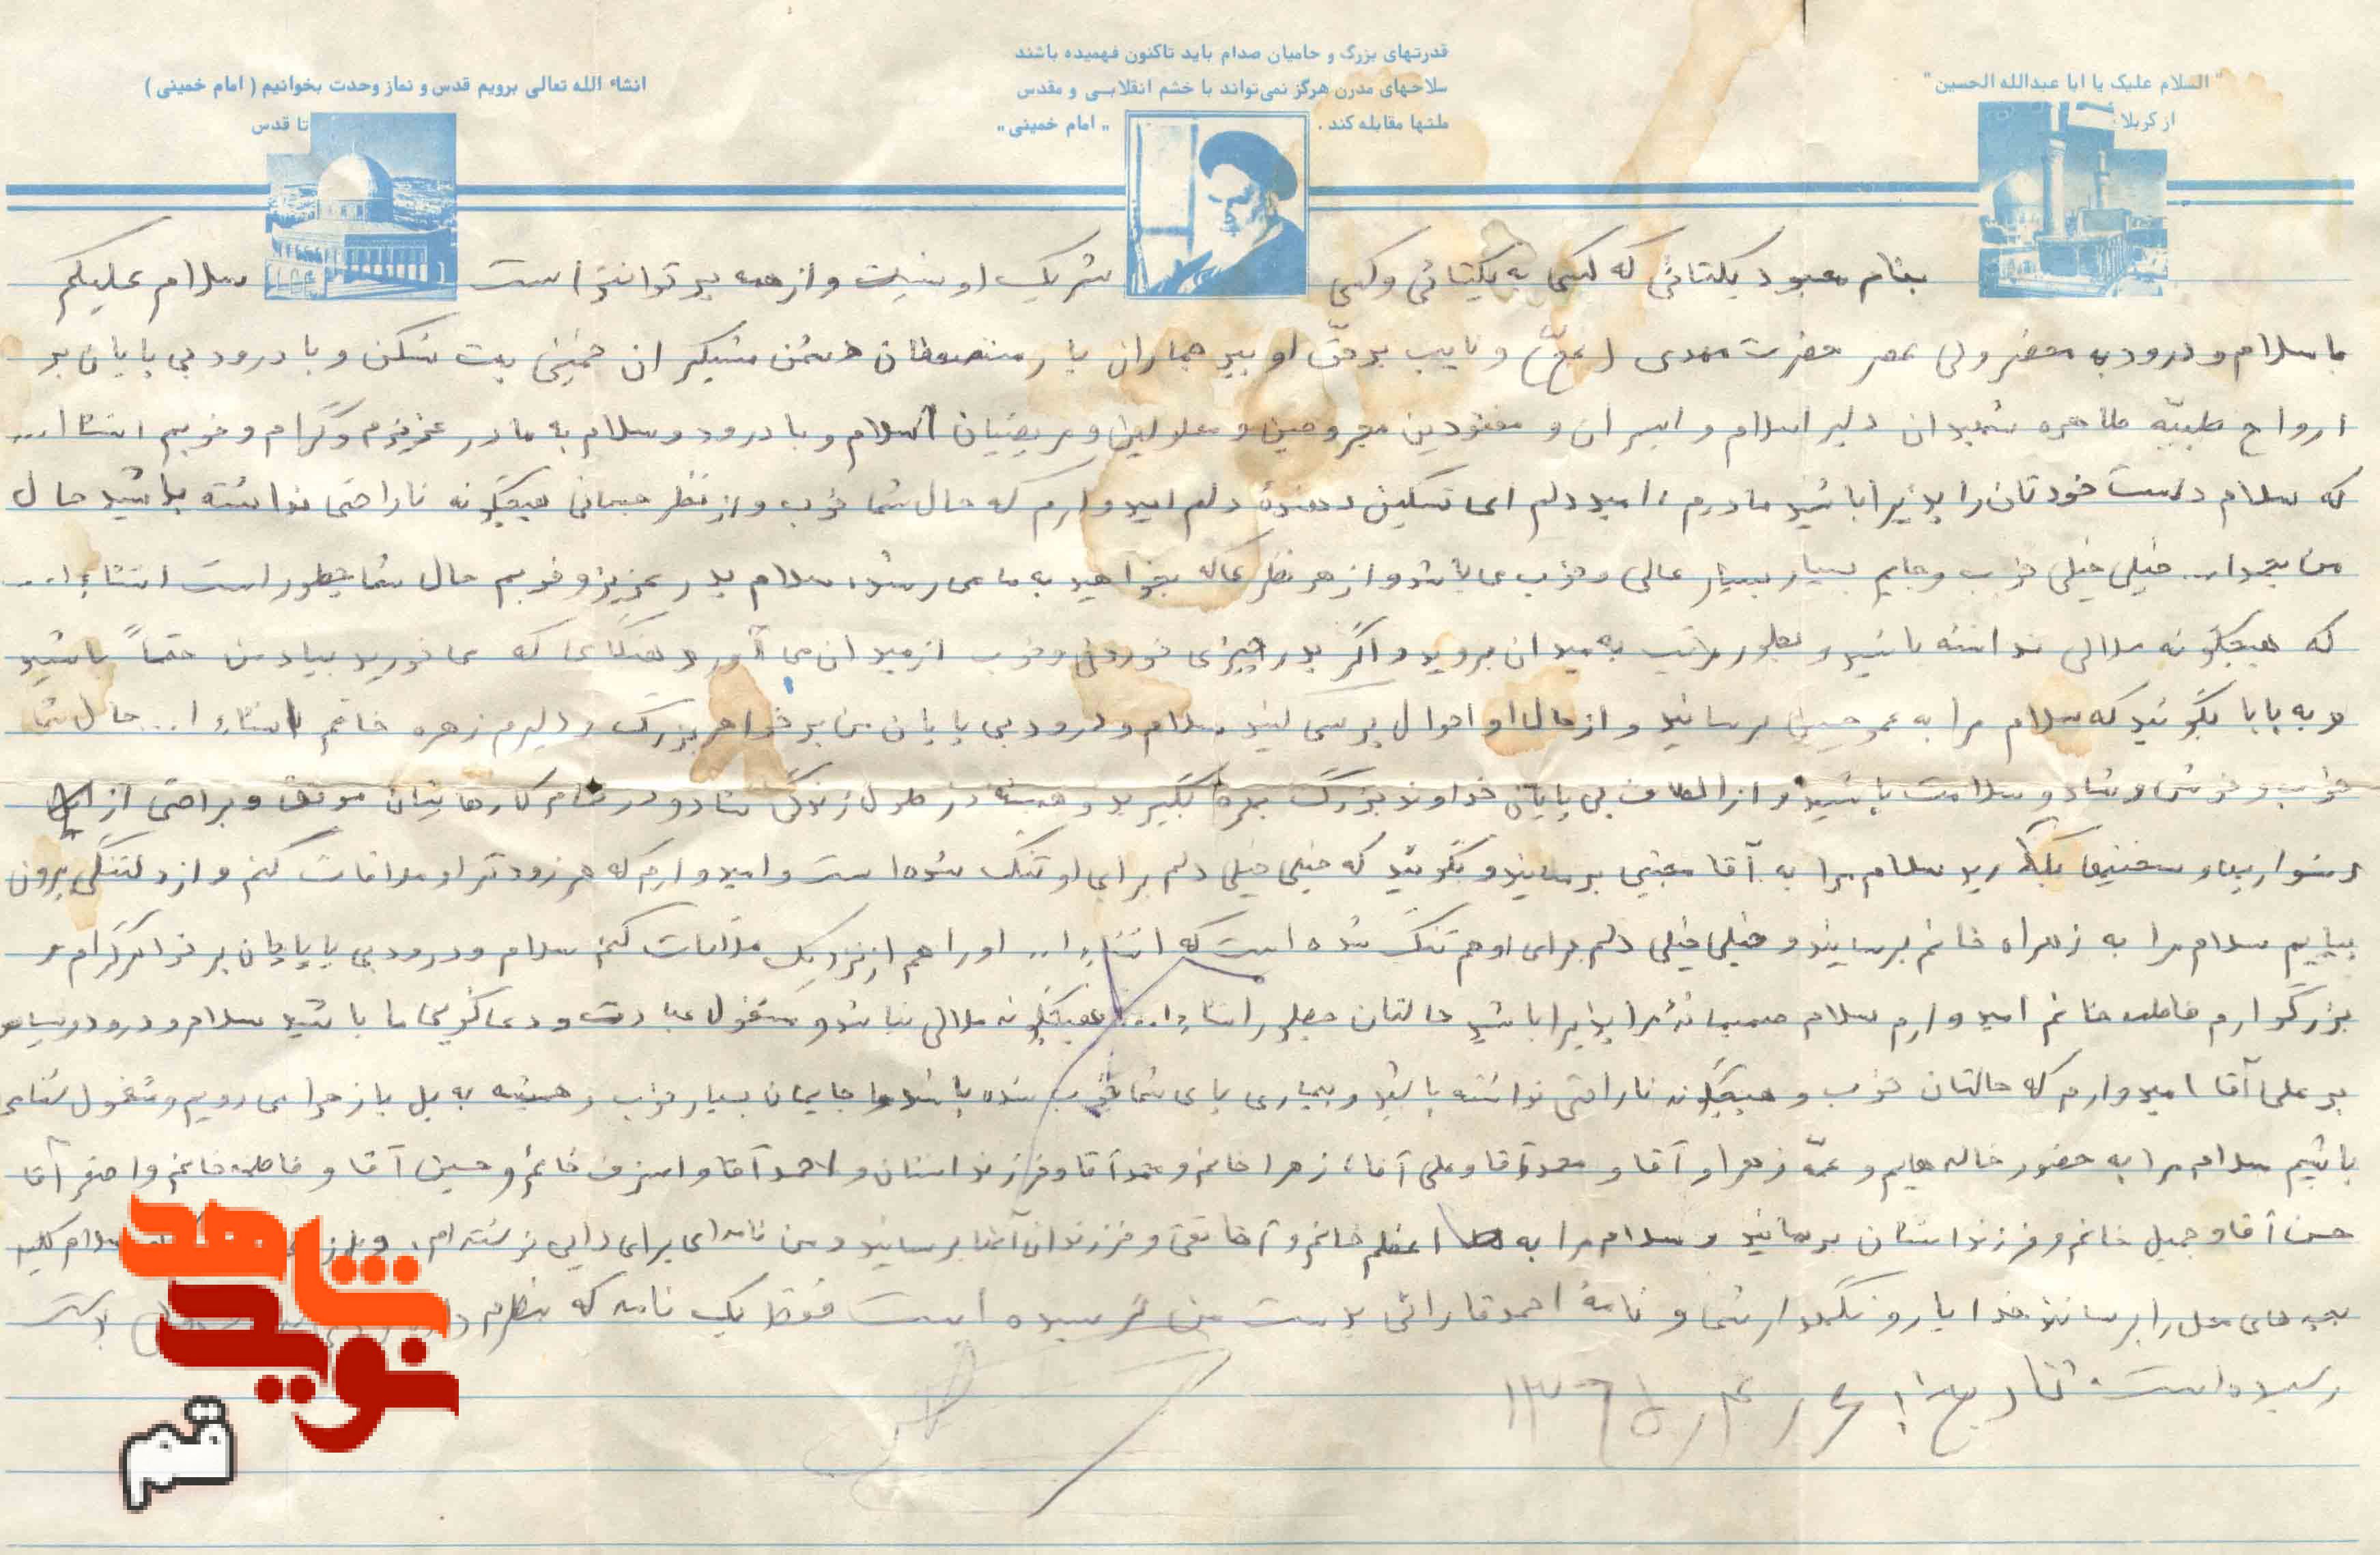 قدرتهای بزرگ و حامیان صدام باید تاکنون فهمیده باشند
سلاحهای مدرن هرگز نمی‌تواند با خشم انقلابی و مقدس
ملتها مقابله کند . " امام خمینی "
" السلام علیک یا ابا عبدالله الحسین "
از کربلا
انشاء الله تعالی برویم قدس و نماز وحدت بخوانیم ( امام خمینی )
تا قدس
بنام معبود یکتائی که کسی به یکتائی و کسی شریک او نیست و از همه برتر است سلام علیکم
با سلام و درود به محضر ولی عصر حضرت مهدی (عج) و نایب برحق او پیر جماران یار مستضعفان دشمن مستکبران خمینی بت شکن و با درود بی پایان بر
ارواح طیبّه طاهره شهیدان دلیر اسلام و اسیران و مفقودین مجروحین و معلولین و مریضیان اسلام و با درود و سلام به مادر عزیزم و گرام و خوبم انشا ا...
که سلام دست خودتان را پذیرا باشید مادرم ، امید دلم ای تسکین دهندۀ دلم امیدوارم که حال شما خوب و از نظر جسمانی هیچگونه ناراحتی نداشته باشید حال
من بحمدا... خیلی خیلی خوب و جایم بسیار بسیار عالی و خوب می باشد و از هر نظر که بخواهید به ما می رسند . سلام پدر عزیز و خوبم حال شما چطور است انشاء ا...
که هیچگونه ملالی نداشته باشید و بطور مرتب به میدان بروید و اگر پدر چیزی خوردنی و خوب از میدان می آورد هنگامی که می خورید بیاد من حتماً باشید
و به بابا بگوئید که سلام مرا به عمو حسین برسانید و از حال او احوال پرسی کنید سلام و درود بی پایان من بر خواهر بزرگ و دلیرم زهره خانم انشاء ا... حال شما
خوب و خوش و شاد و سلامت باشید و از الطاف بی پایان خداوند بزرگ بهره بگیرید و همیشه در طول زندگی شاد و در تمام کارهایتان موفق و براحتی از
دشواریها و سختیها بگذارید سلام مرا به آقا مجتبی برسانید و بگوئید که خیلی خیلی دلم برای او تنگ شده است و امیدوارم که هر زودتر او ملاقات کنم و از دلتنگی برون
بیایم سلام مرا به زهراء خانم برسانید و خیلی خیلی دلم برای او هم تنگ شده است که انشاءا... او را هم از نزدیک ملاقات کنم سلام و درود بی پایان بر خواهر گرام و
بزرگوارم فاطمه خانم امیدوارم سلام صمیمانه مرا پذیرا باشید حالتان چطور انشاءا... هیچگونه ملالی نباشد و مشغول عبادت و دعاگوئی ما باشید سلام و درود و سپاس
بر علی آقا امیدوارم که حالتان خوب و هیچگونه ناراحتی نداشته باشید و بیماری پای شما خوب شده باشد ما جایمان بسیار خوب و همیشه به پل باز خرا می رویم و مشغول شنا می
باشیم سلام مرا به حضور خاله هایم و عمّه زهرا و آقا و محمد آقا و علی آقا ، زهرا خانم و محمد آقا و فرزندانشان و احمد آقا و اشرف خانم و حسین آقا و فاطمه خانم و اصغر آقا
حسن آقا و جمیل خانم و فرزندانشان برسانید و سلام مرا به اعظم خانم و آقا تقی و فرزندان آنها برسانید و من نامه ای برای دایی فرستاده ام . سلام کلیه
بچه های محل را برسانید خدا یار و نگهدار شما و نامۀ احمد قارائی بدست من نرسیده است فقط یک نامه که بنظرم
رسیده است . تاریخ : ۱۳۶۵/۳/۶
شاهد
نوید
قم